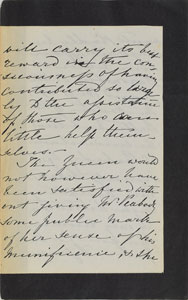 will carry its best
reward in the con
sciousness of having
contributed so large
ly to the assistance
of those who can
little help them
selves.
The Queen would
not however have
been satisfied with
out giving Mr Peabody
some public mark
of her sense of his
munificence & she